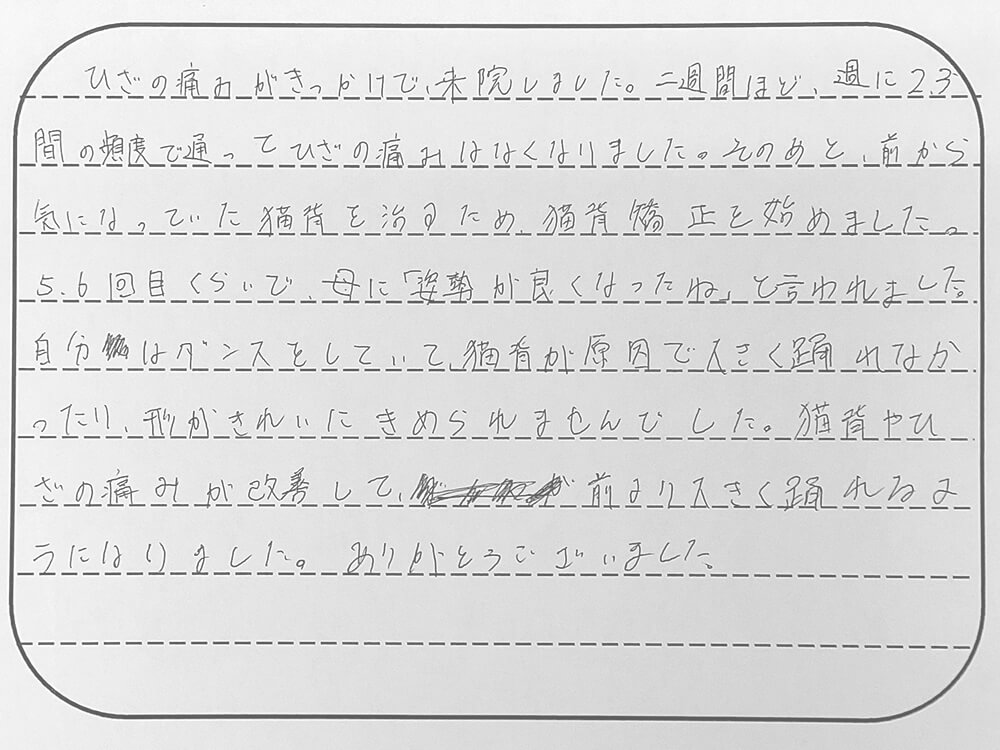 ひざの痛みがきっかけで、来院しました。二週間ほど、週に2.3
間の頻度で通ってひざの痛みはなくなりました。そのあと、前から
気になっていた猫背を治すため、猫背矯正を始めました。
5.6回目くらいで、母に「姿勢が良くなったね」と言われました。
自分はダンスをしていて、猫背が原因で大きく踊れなか
ったり、形がきれいにきめられませんでした。猫背やひ
ざの痛みが改善して、前より大きく踊れるよ
うになりました。ありがとうございました。